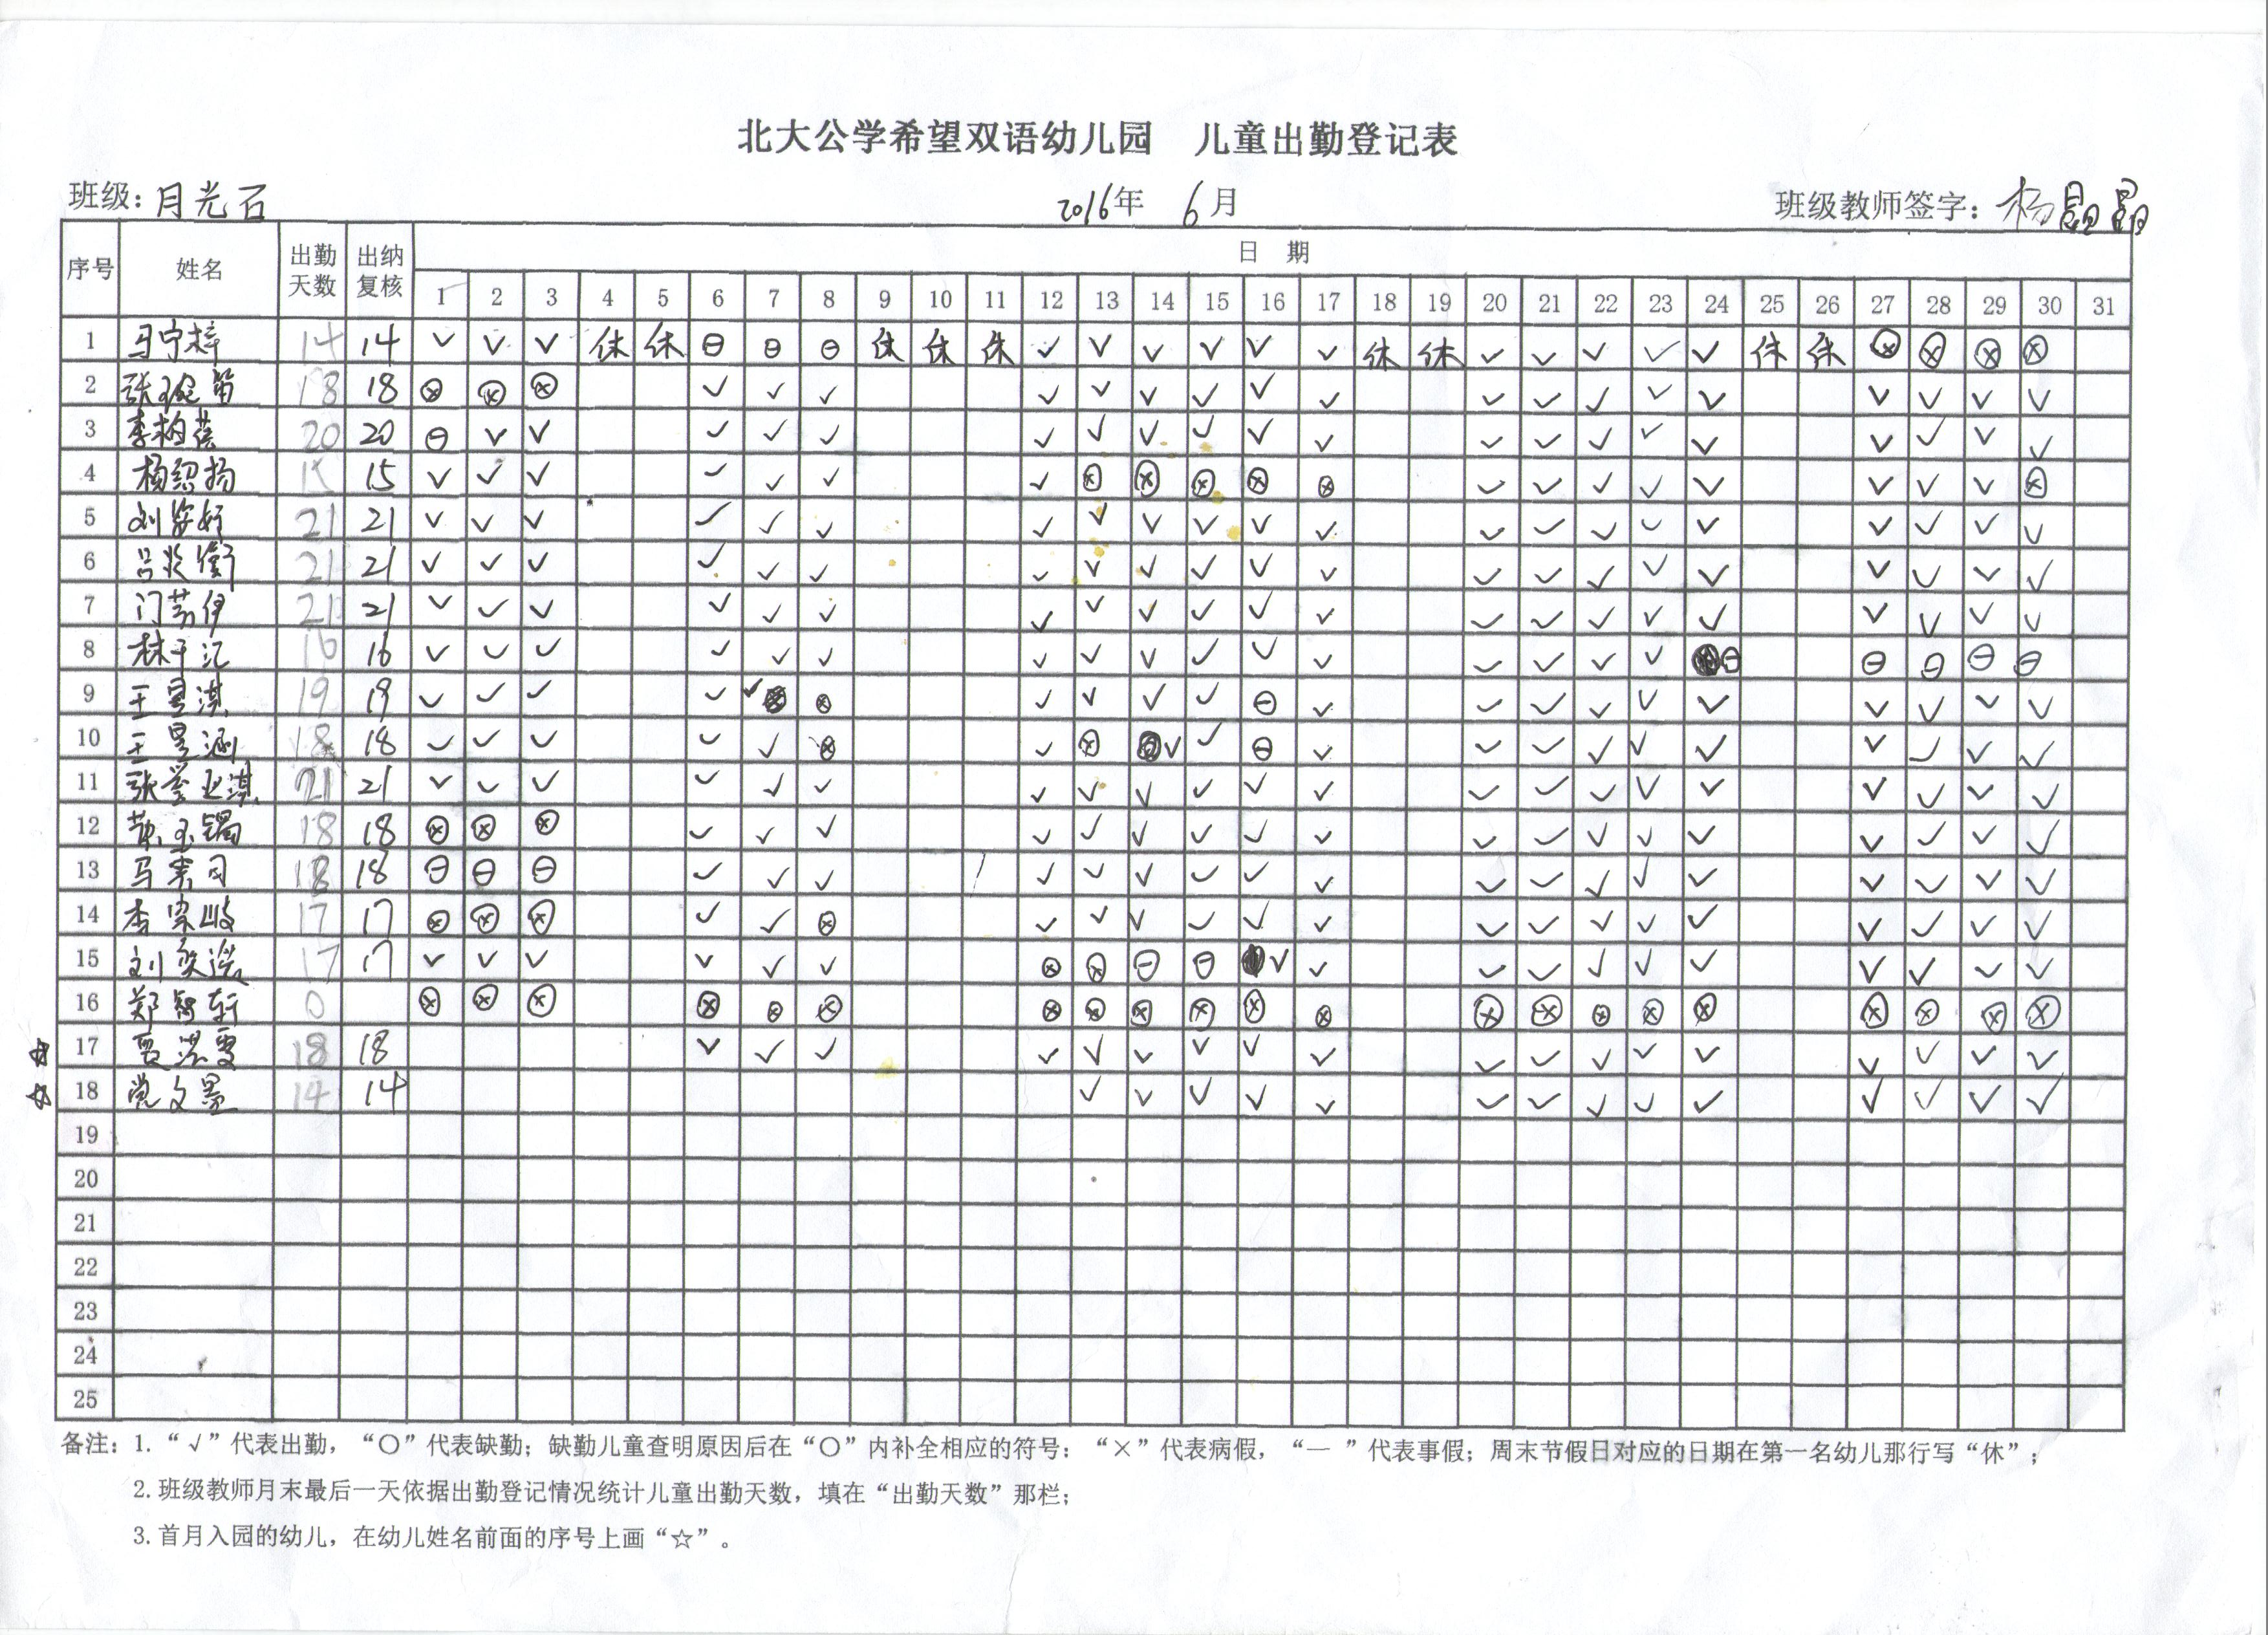 北大公学希望双语幼儿园 儿童出勤登记表
班级：月光石 2016年 6月 班级教师签字：杨
序号 姓名 出勤天数 出纳复核 日 期
1 2 3 4 5 6 7 8 9 10 11 12 13 14 15 16 17 18 19 20 21 22 23 24 25 26 27 28 29 30 31
1 马宁梓 14 14 √ √ √ 休 休 ⊖ ⊖ ⊖ 休 休 休 √ √ √ √ √ √ 休 休 √ √ √ √ √ 休 休 ⊗ ⊗ ⊗ ⊗
2 张琬笛 18 18 ⊗ ⊗ ⊗ √ √ √ √ √ √ √ √ √ √ √ √ √ √ √ √ √ √
3 李柏 20 20 ⊖ √ √ √ √ √ √ √ √ √ √ √ √ √ √ √ √ √ √ √ √
4 杨韶扬 15 15 √ √ √ √ √ √ √ ⊗ ⊗ ⊗ ⊗ ⊗ √ √ √ √ √ √ √ √ ⊗
5 刘 21 21 √ √ √ √ √ √ √ √ √ √ √ √ √ √ √ √ √ √ √ √ √
6 吕 衡 21 21 √ √ √ √ √ √ √ √ √ √ √ √ √ √ √ √ √ √ √ √ √
7 门 伊 21 21 √ √ √ √ √ √ √ √ √ √ √ √ √ √ √ √ √ √ √ √ √
8 林千 16 16 √ √ √ √ √ √ √ √ √ √ √ √ √ √ √ √ ⊖ ⊖ ⊖ ⊖ ⊖
9 王昱淇 19 19 √ √ √ √ √ ⊗ √ √ √ √ ⊖ √ √ √ √ √ √ √ √ √ √
10 王昱涵 18 18 √ √ √ √ √ ⊗ √ ⊗ √ √ ⊖ √ √ √ √ √ √ √ √ √ √
11 张 淇 21 21 √ √ √ √ √ √ √ √ √ √ √ √ √ √ √ √ √ √ √ √ √
12 玉镯 18 18 ⊗ ⊗ ⊗ √ √ √ √ √ √ √ √ √ √ √ √ √ √ √ √ √ √
13 马 18 18 ⊖ ⊖ ⊖ √ √ √ √ √ √ √ √ √ √ √ √ √ √ √ √ √ √
14 李 17 17 ⊗ ⊗ ⊗ √ √ ⊗ √ √ √ √ √ √ √ √ √ √ √ √ √ √ √
15 刘奕 17 17 √ √ √ √ √ √ ⊗ ⊗ ⊖ ⊖ √ √ √ √ √ √ √ √ √ √ √
16 郑智轩 0 ⊗ ⊗ ⊗ ⊗ ⊗ ⊗ ⊗ ⊗ ⊗ ⊗ ⊗ ⊗ ⊗ ⊗ ⊗ ⊗ ⊗ ⊗ ⊗ ⊗ ⊗
☆ 17 雯 18 18 √ √ √ √ √ √ √ √ √ √ √ √ √ √ √ √ √ √
☆ 18 党文墨 14 14 √ √ √ √ √ √ √ √ √ √ √ √ √ √
19
20
21
22
23
24
25
备注：1.“√”代表出勤，“○”代表缺勤；缺勤儿童查明原因后在“○”内补全相应的符号；“×”代表病假，“— ”代表事假；周末节假日对应的日期在第一名幼儿那行写“休”；
2.班级教师月末最后一天依据出勤登记情况统计儿童出勤天数，填在“出勤天数”那栏；
3.首月入园的幼儿，在幼儿姓名前面的序号上画“☆”。